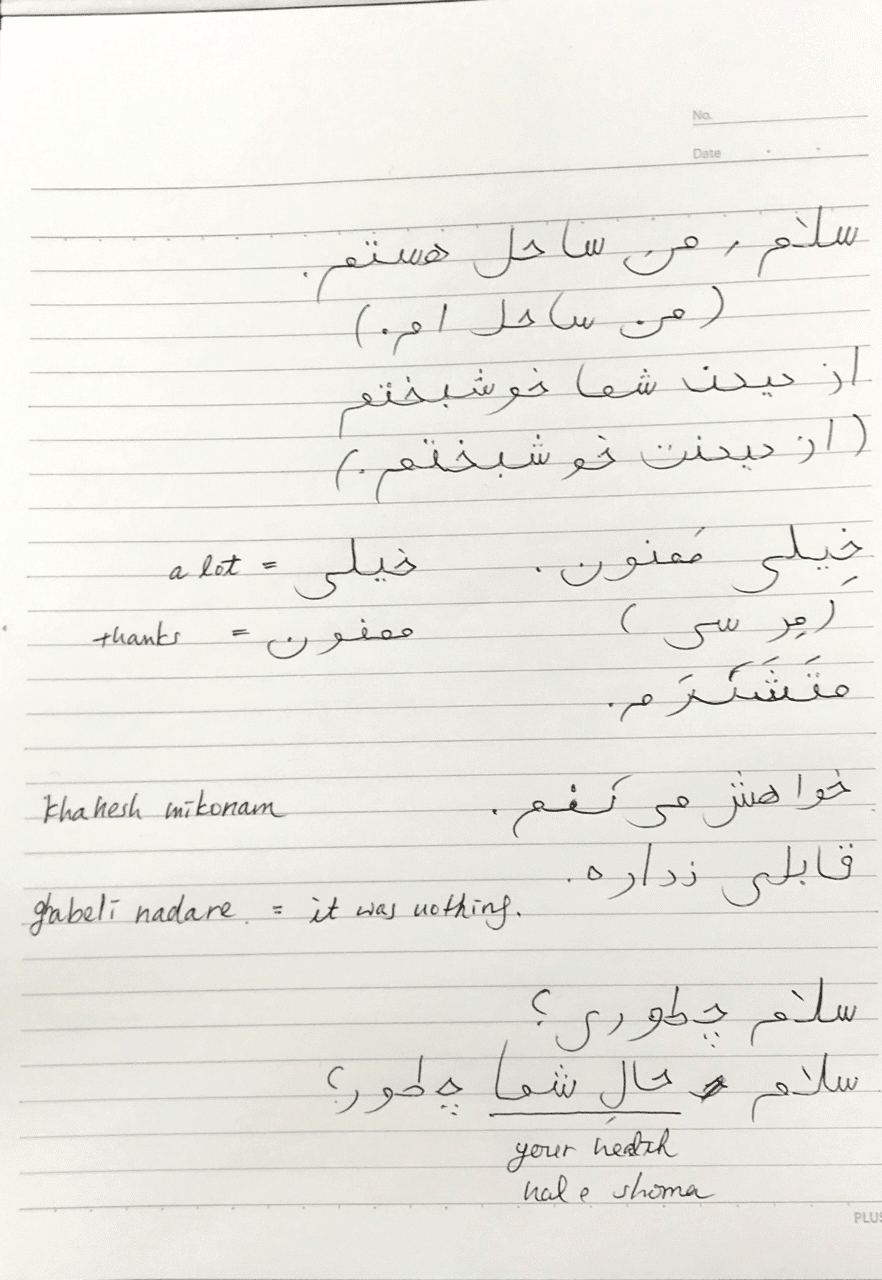 No.
Date
سلام ، من ساحل هستم.
(من ساحل ام.)
از دیدن شما خوشبختم
(از دیدنت خوشبختم.)
خِیلی مَمنون. خیلی = a lot
(مِر سی) ممنون = thanks
مَتَشَکَرَ م.
خواهش می کنم. khahesh mikonam
قابلی نداره.
ghabeli nadare. = it was nothing.
سلام چطوری؟
سلام حالِ شما چطور؟
your health
hal e shoma
PLUS